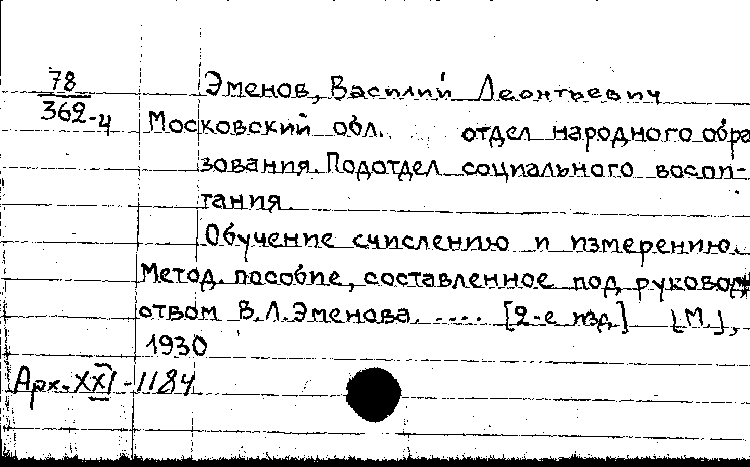 78
362-4
Эменов, Василий Леонтьевич
Московский обл. отдел народного обра
зования. Подотдел социального воспи-
тания.
Обучение счислению и измерению.
Метод. пособие, составленное под руковод
ством В.Л.Эменова. .... [2-е изд.] [М.],
1930
Арх. XXI-1184